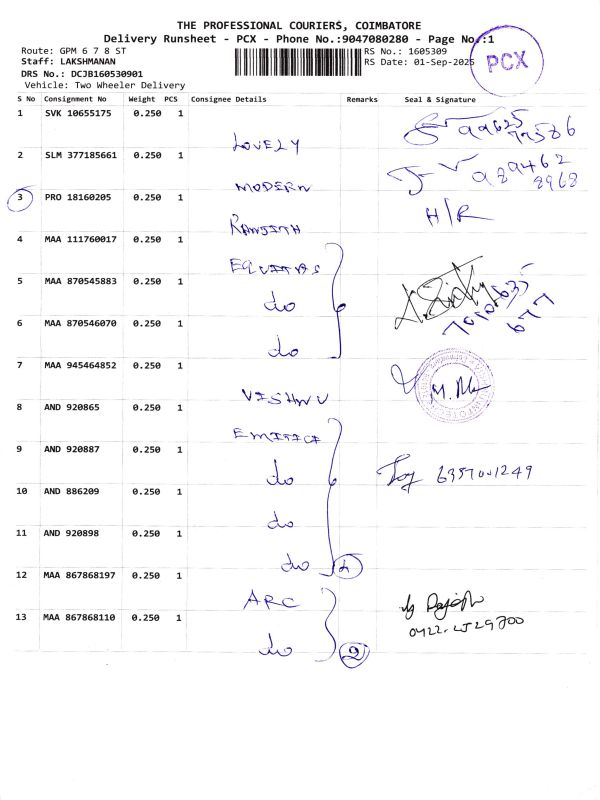 THE PROFESSIONAL COURIERS, COIMBATORE
Delivery Runsheet - PCX - Phone No.:9047080280 - Page No.:1
PCX
Route: GPM 6 7 8 ST
RS No.: 1605309
Staff: LAKSHMANAN
RS Date: 01-Sep-2025
DRS No.: DCJB160530901
Vehicle: Two Wheeler Delivery
S No Consignment No Weight PCS Consignee Details Remarks Seal & Signature
1 SVK 10655175 0.250 1 LOVELY
2 SLM 377185661 0.250 1 MODERN
3 PRO 18160205 0.250 1 RANJITH H/R
4 MAA 111760017 0.250 1 EQUITAS
5 MAA 870545883 0.250 1 do
6 MAA 870546070 0.250 1 do
7 MAA 945464852 0.250 1 VISHNU
8 AND 920865 0.250 1
9 AND 920887 0.250 1 do 6357001249
10 AND 886209 0.250 1 do
11 AND 920898 0.250 1 do
12 MAA 867868197 0.250 1 ARC
13 MAA 867868110 0.250 1 do 2